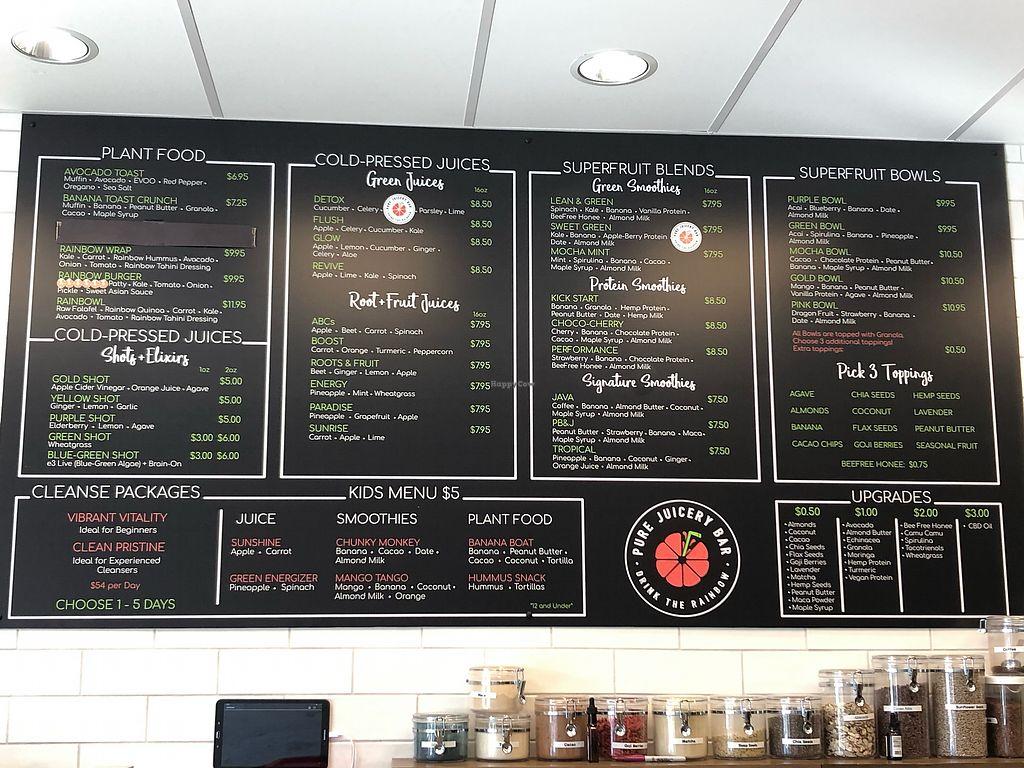 PLANT FOOD
AVOCADO TOAST $6.95
Muffin • Avocado • EVOO • Red Pepper •
Oregano • Sea Salt
BANANA TOAST CRUNCH $7.25
Muffin • Banana • Peanut Butter • Granola •
Cacao • Maple Syrup
RAINBOW WRAP $9.95
Kale • Carrot • Rainbow Hummus • Avocado •
Onion • Tomato • Rainbow Tahini Dressing
RAINBOW BURGER $9.95
Patty • Kale • Tomato • Onion •
Pickle • Sweet Asian Sauce
RAINBOWL $11.95
Raw Falafel • Rainbow Quinoa • Carrot • Kale •
Avocado • Tomato • Rainbow Tahini Dressing
COLD-PRESSED JUICES
Shots + Elixirs
1oz 2oz
GOLD SHOT $5.00
Apple Cider Vinegar • Orange Juice • Agave
YELLOW SHOT $5.00
Ginger • Lemon • Garlic
PURPLE SHOT $5.00
Elderberry • Lemon • Agave
GREEN SHOT $3.00 $6.00
Wheatgrass
BLUE-GREEN SHOT $3.00 $6.00
e3 Live (Blue-Green Algae) + Brain-On
COLD-PRESSED JUICES
Green Juices
16oz
DETOX $8.50
Cucumber • Celery • Parsley • Lime
FLUSH $8.50
Apple • Celery • Cucumber • Kale
GLOW $8.50
Apple • Lemon • Cucumber • Ginger •
Celery • Aloe
REVIVE $8.50
Apple • Lime • Kale • Spinach
Root + Fruit Juices
16oz
ABCs $7.95
Apple • Beet • Carrot • Spinach
BOOST $7.95
Carrot • Orange • Turmeric • Peppercorn
ROOTS & FRUIT $7.95
Beet • Ginger • Lemon • Apple
ENERGY $7.95
Pineapple • Mint • Wheatgrass
PARADISE $7.95
Pineapple • Grapefruit • Apple
SUNRISE $7.95
Carrot • Apple • Lime
SUPERFRUIT BLENDS
Green Smoothies
16oz
LEAN & GREEN $7.95
Spinach • Kale • Banana • Vanilla Protein •
BeeFree Honee • Almond Milk
SWEET GREEN $7.95
Kale • Banana • Apple-Berry Protein
Date • Almond Milk
MOCHA MINT $7.95
Mint • Spirulina • Banana • Cacao •
Maple Syrup • Almond Milk
Protein Smoothies
KICK START $8.50
Banana • Granola • Hemp Protein •
Peanut Butter • Date • Hemp Milk
CHOCO-CHERRY $8.50
Cherry • Banana • Chocolate Protein •
Cacao • Maple Syrup • Almond Milk
PERFORMANCE $8.50
Strawberry • Banana • Chocolate Protein •
BeeFree Honee • Almond Milk
Signature Smoothies
JAVA $7.50
Coffee • Banana • Almond Butter • Coconut •
Maple Syrup • Almond Milk
PB&J $7.50
Peanut Butter • Strawberry • Banana • Maca •
Maple Syrup • Almond Milk
TROPICAL $7.50
Pineapple • Banana • Coconut • Ginger •
Orange Juice • Almond Milk
SUPERFRUIT BOWLS
PURPLE BOWL $9.95
Acai • Blueberry • Banana • Date •
Almond Milk
GREEN BOWL $9.95
Acai • Spirulina • Banana • Pineapple •
Almond Milk
MOCHA BOWL $10.50
Cacao • Chocolate Protein • Peanut Butter •
Banana • Maple Syrup • Almond Milk
GOLD BOWL $10.50
Mango • Banana • Peanut Butter •
Vanilla Protein • Agave • Almond Milk
PINK BOWL $10.95
Dragon Fruit • Strawberry • Banana •
Date • Almond Milk
All Bowls are topped with Granola.
Choose 3 additional toppings!
Extra toppings: $0.50
Pick 3 Toppings
AGAVE CHIA SEEDS HEMP SEEDS
ALMONDS COCONUT LAVENDER
BANANA FLAX SEEDS PEANUT BUTTER
CACAO CHIPS GOJI BERRIES SEASONAL FRUIT
BEEFREE HONEE: $0.75
CLEANSE PACKAGES
VIBRANT VITALITY
Ideal for Beginners
CLEAN PRISTINE
Ideal for Experienced
Cleansers
$54 per Day
CHOOSE 1 - 5 DAYS
KIDS MENU $5
JUICE
SUNSHINE
Apple • Carrot
GREEN ENERGIZER
Pineapple • Spinach
SMOOTHIES
CHUNKY MONKEY
Banana • Cacao • Date •
Almond Milk
MANGO TANGO
Mango • Banana • Coconut •
Almond Milk • Orange
PLANT FOOD
BANANA BOAT
Banana • Peanut Butter •
Cacao • Coconut • Tortilla
HUMMUS SNACK
Hummus • Tortillas
"12 and Under"
PURE JUICERY BAR
• DRINK THE RAINBOW •
UPGRADES
$0.50
• Almonds
• Coconut
• Cacao
• Chia Seeds
• Flax Seeds
• Goji Berries
• Lavender
• Matcha
• Hemp Seeds
• Peanut Butter
• Maca Powder
• Maple Syrup
$1.00
• Avocado
• Almond Butter
• Echinacea
• Granola
• Moringa
• Hemp Protein
• Turmeric
• Vegan Protein
$2.00
• Bee Free Honee
• Camu Camu
• Spirulina
• Tocotrienols
• Wheatgrass
$3.00
• CBD Oil
HappyCow
Coffee
Cacao
Goji Berries
Matcha
Hemp Seeds
Chia Seeds
Almonds
Sunflower Seeds